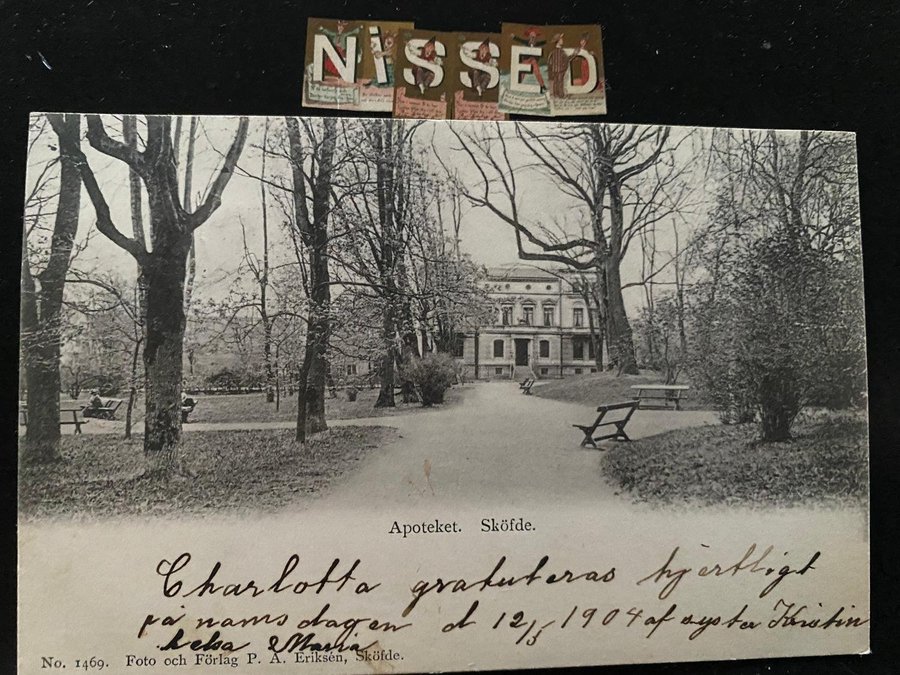 NISSED
Apoteket. Sköfde.
Charlotta gratuteras hjertligt
på namsdagen d 12/5 1904 af syster Kristin
helsa Maria
No. 1469. Foto och Förlag P. A. Eriksén, Sköfde.